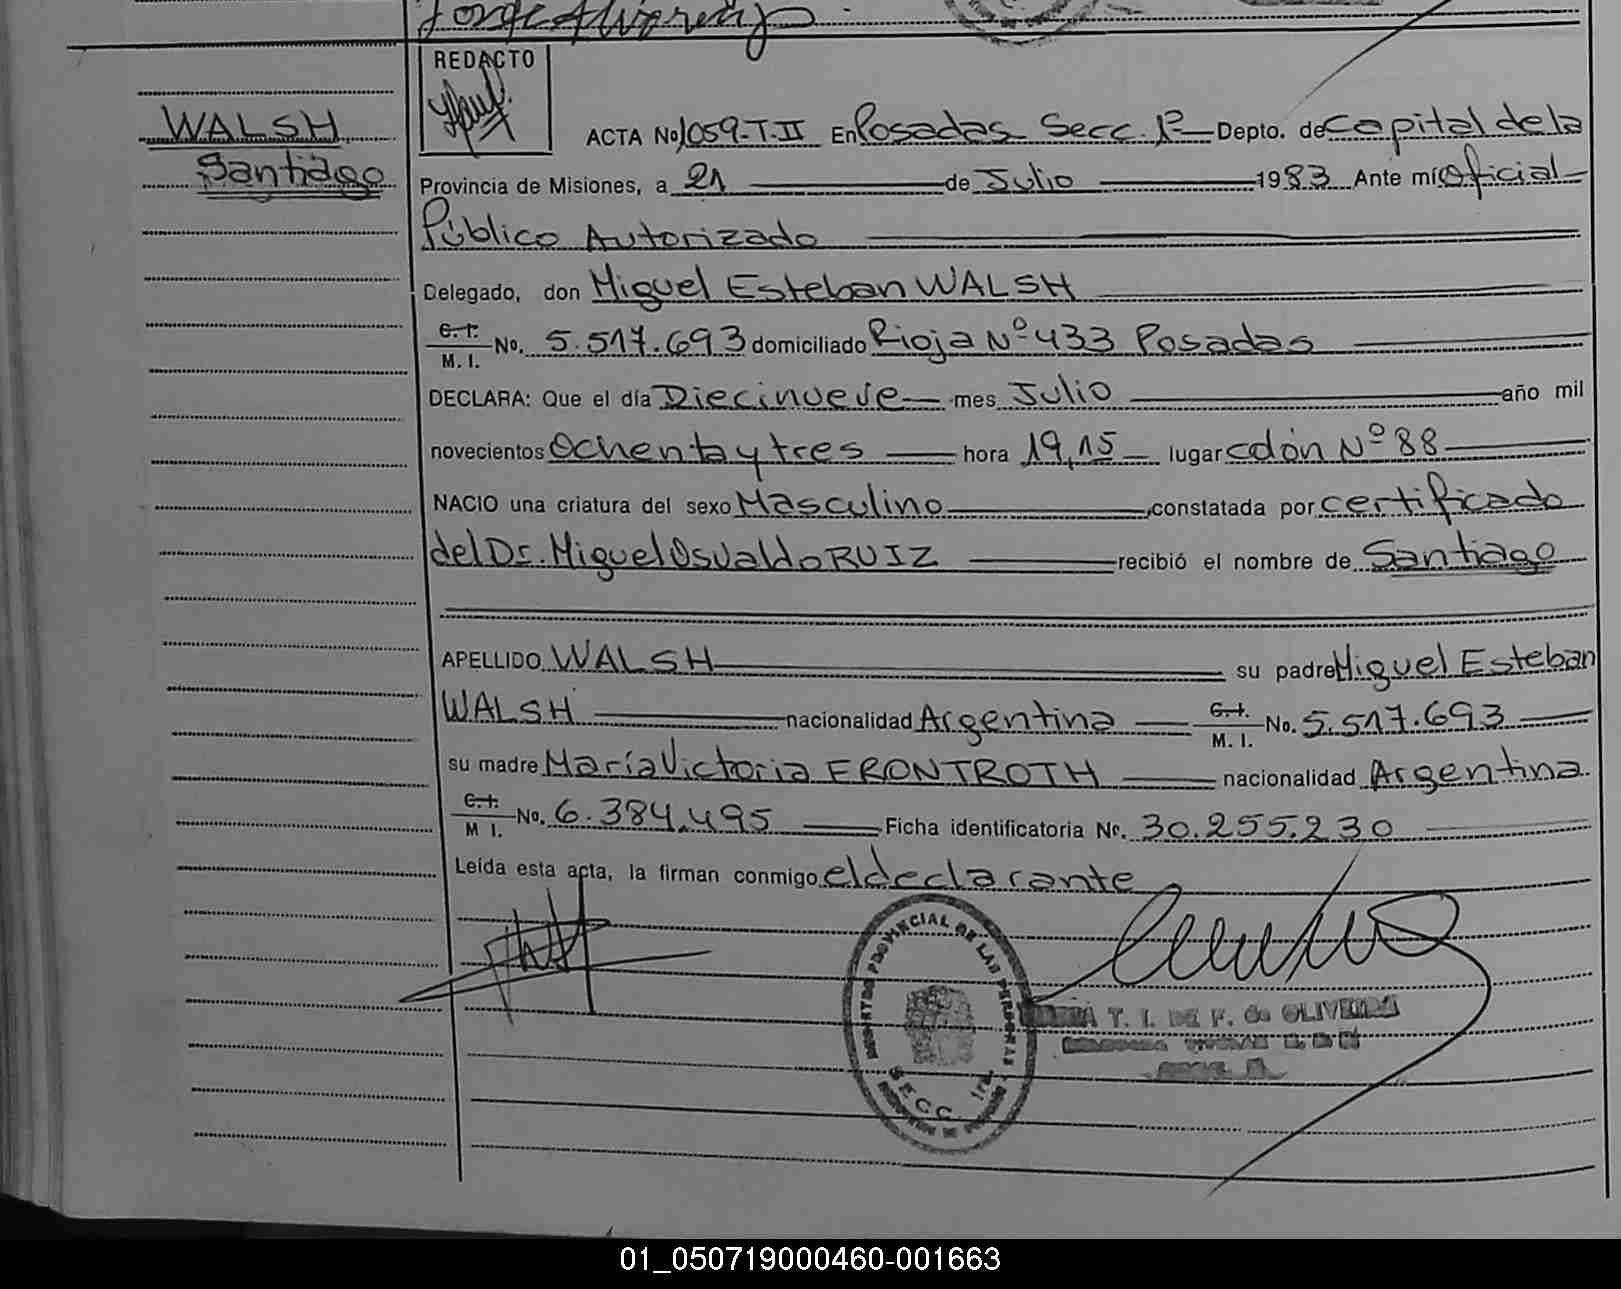 Jorge Alvarenga
REDACTO
WALSH
Santiago
ACTA No 1059-T-II En Posadas Secc. 1ª Depto. de Capital de la
Provincia de Misiones, a 21 de Julio 1983 Ante mí Oficial
Público Autorizado
Delegado, don Miguel Esteban WALSH
C.I.
M. I. No. 5.517.693 domiciliado Rioja Nº 433 Posadas
DECLARA: Que el día Diecinueve mes Julio año mil
novecientos Ochenta y tres hora 19,15 lugar Colón Nº 88
NACIO una criatura del sexo Masculino, constatada por certificado
del Dr. Miguel Osvaldo RUIZ recibió el nombre de Santiago
APELLIDO WALSH su padre Miguel Esteban
WALSH nacionalidad Argentina C.I. M. I. No. 5.517.693
su madre María Victoria FRONTROTH nacionalidad Argentina
C.I.
M I. No. 6.384.495 Ficha identificatoria No. 30.255.230
Leída esta acta, la firman conmigo el declarante
REGISTRO PROVINCIAL DE LAS PERSONAS
SECC. 1ra.
T. I. DE F. de OLIVEIRA
01_050719000460-001663